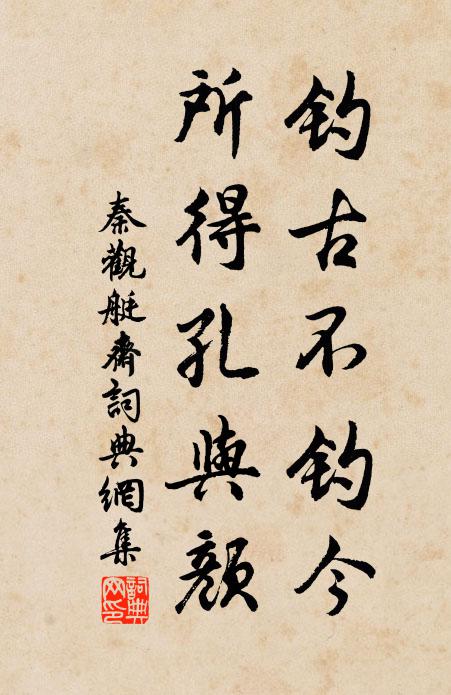 钓古不钓今
所得孔與顔
秦觀艇齋詞典網集
詞典网印